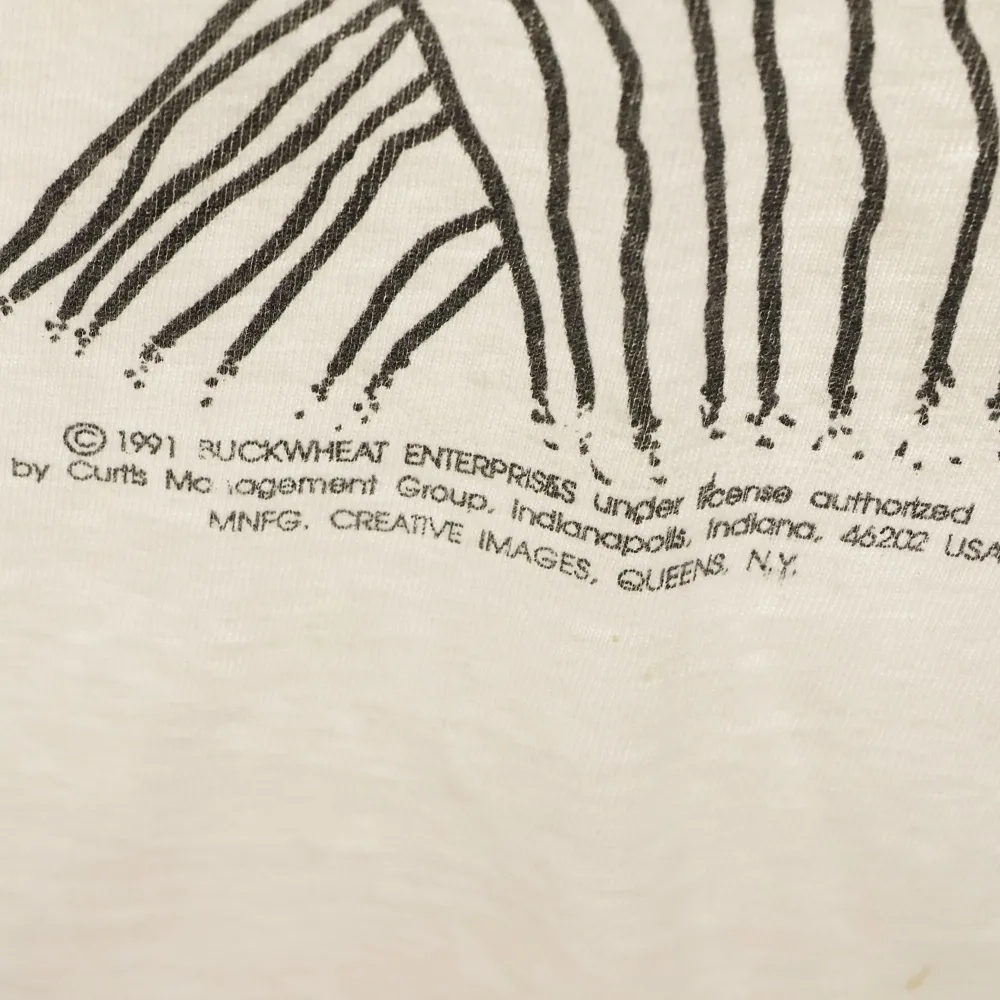 © 1991 BUCKWHEAT ENTERPRISES under license authorized
by Curtis Management Group, Indianapolis, Indiana, 46202 USA
MNFG. CREATIVE IMAGES, QUEENS, N.Y.